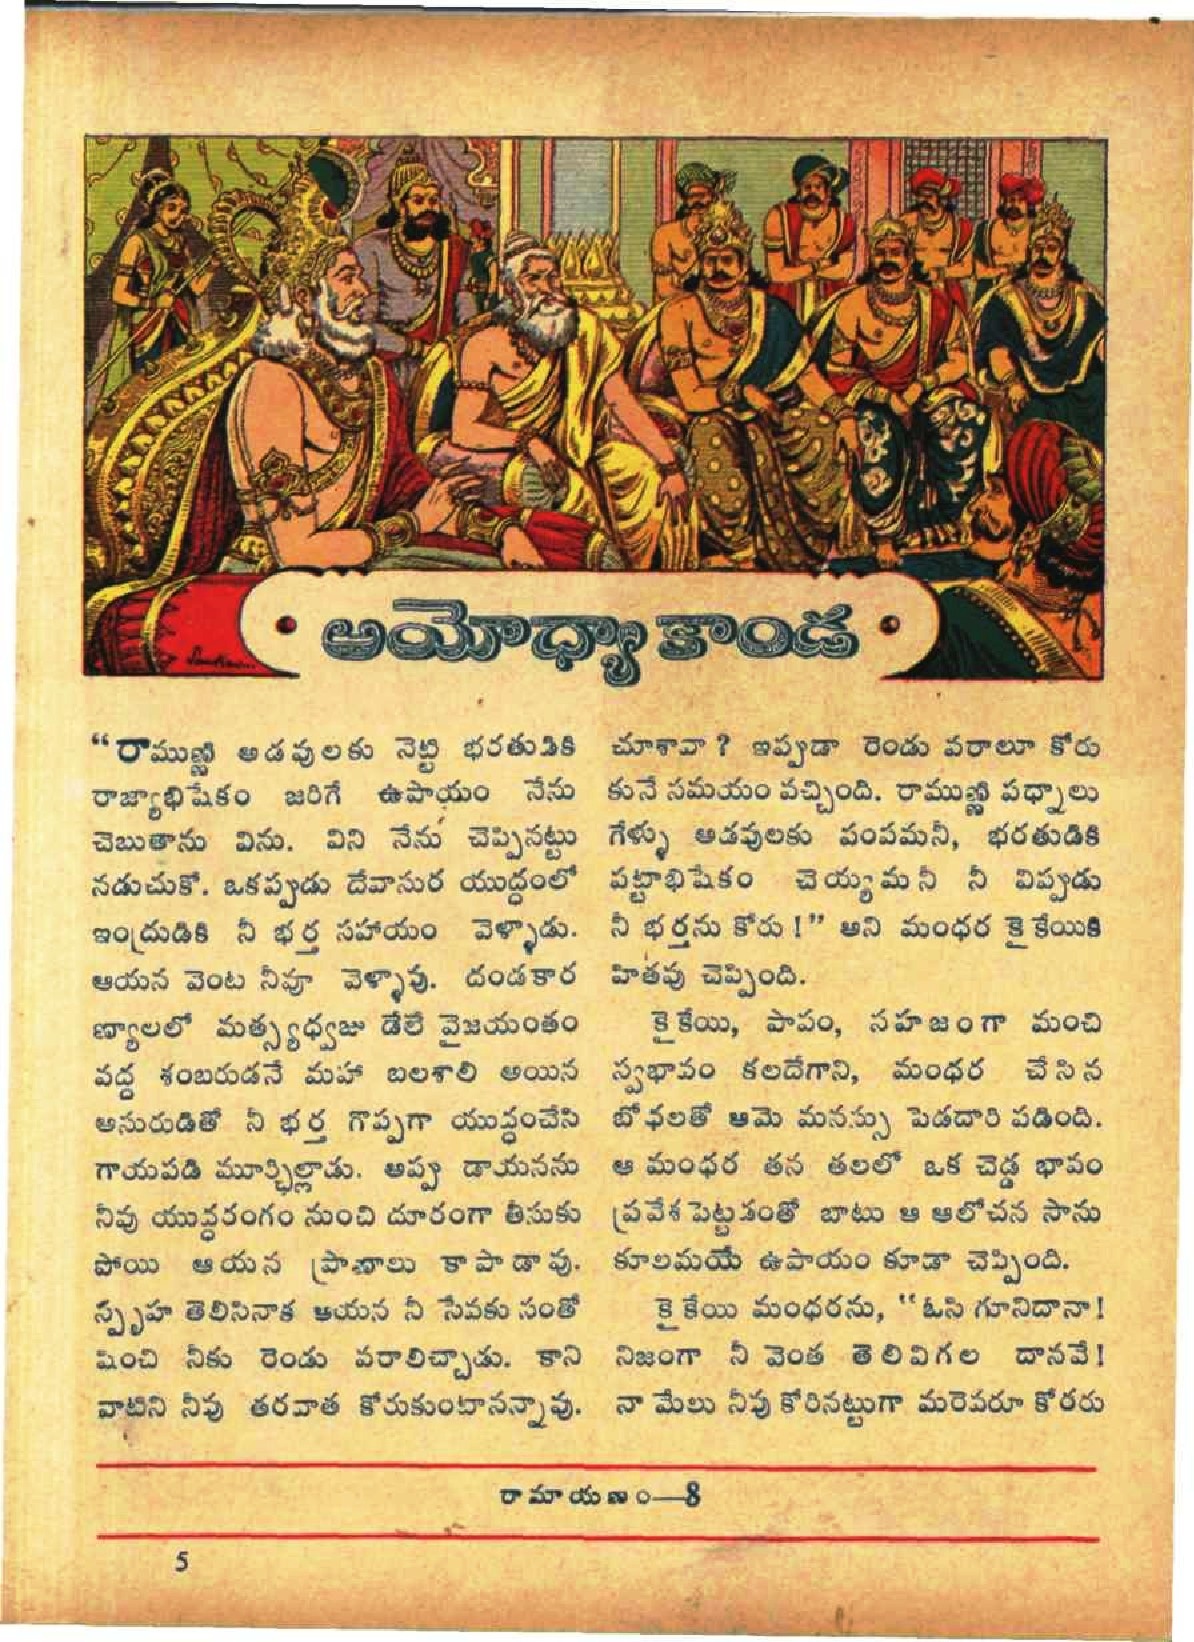 అయోధ్యాకాండ
“రాముణ్ణి అడవులకు నెట్టి భరతుడికి
రాజ్యాభిషేకం జరిగే ఉపాయం నేను
చెబుతాను విను. విని నేను చెప్పినట్టు
నడుచుకో. ఒకప్పుడు దేవాసుర యుద్ధంలో
ఇంద్రుడికి నీ భర్త సహాయం వెళ్ళాడు.
ఆయన వెంట నీవూ వెళ్ళావు. దండకార
ణ్యాలలో మత్స్యధ్వజు డేలే వైజయంతం
వద్ద శంబరుడనే మహా బలశాలి అయిన
అసురుడితో నీ భర్త గొప్పగా యుద్ధంచేసి
గాయపడి మూర్ఛిల్లాడు. అప్పు డాయనను
నీవు యుద్ధరంగం నుంచి దూరంగా తీసుకు
పోయి ఆయన ప్రాణాలు కాపాడావు.
స్పృహ తెలిసినాక ఆయన నీ సేవకు సంతో
షించి నీకు రెండు వరాలిచ్చాడు. కాని
వాటిని నీవు తరవాత కోరుకుంటానన్నావు.
చూశావా? ఇప్పుడా రెండు వరాలూ కోరు
కునే సమయం వచ్చింది. రాముణ్ణి పధ్నాలు
గేళ్ళు అడవులకు పంపమనీ, భరతుడికి
పట్టాభిషేకం చెయ్యమనీ నీ విప్పుడు
నీ భర్తను కోరు!” అని మంథర కైకేయికి
హితవు చెప్పింది.
కైకేయి, పాపం, సహజంగా మంచి
స్వభావం కలదేగాని, మంథర చేసిన
బోధలతో ఆమె మనస్సు పెడదారి పడింది.
ఆ మంథర తన తలలో ఒక చెడ్డ భావం
ప్రవేశపెట్టడంతో బాటు ఆ ఆలోచన సాను
కూలమయే ఉపాయం కూడా చెప్పింది.
కైకేయి మంథరను, “ఓసి గూనిదానా!
నిజంగా నీ వెంత తెలివిగల దానవే!
నా మేలు నీవు కోరినట్టుగా మరెవరూ కోరరు
రామాయణం—8
5